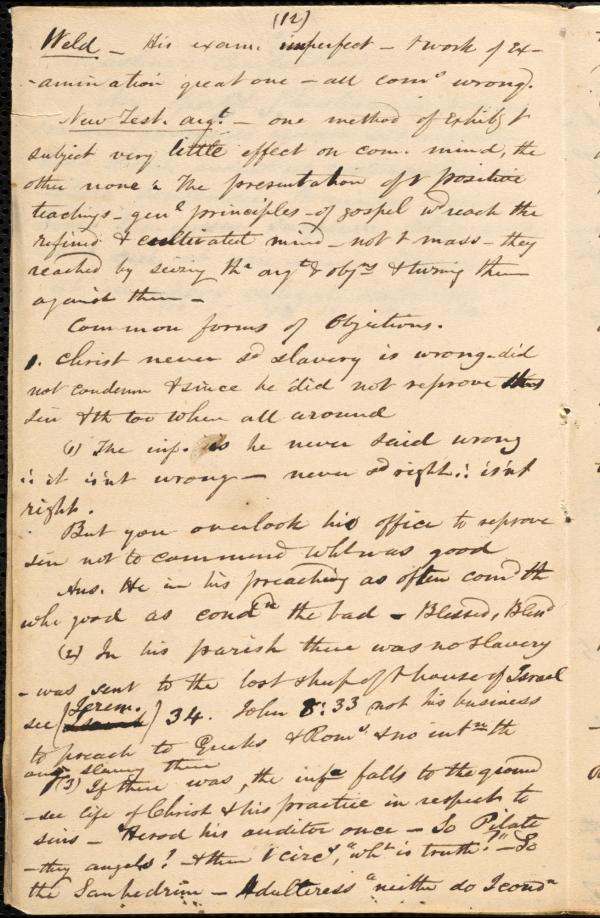 (12)
Weld - His exam. imperfect - & work of Ex-
-amination great one - all com.s wrong.
New Test. arg.t - one method of Exhib.g t
subject very little effect on com. mind, the
other none: The presentation of t positive
teachings - gen.l principles - of gospel wd reach the
refined & cultivated mind - not t mass - they
reached by seizing th arg.ts & obj.ns & turning them
against them -
Common forms of Objections.
1. Christ never sd slavery is wrong - did
not condemn & since he did not reprove this
sin & th too when all around
(1) The inf. is he never said wrong
∴ it isn't wrong - never sd right ∴ isn't
right.
But you overlook his office to reprove
sin not to commend wht was good
Ans. He in his preaching as often com.d th
wh good as cond.n the bad - Blessed, Bless.d
(2) In his parish there was no slavery
- was sent to the lost sheep of t house of Israel
see (Jerem.) 34. John 8:33 not his business
to preach to Greeks & Rom.s & no int.n th
any slavery there
(3) If there was, the inf.e falls to the ground
- see life of Christ & his practice in respect to
sins - Herod his auditor once - So Pilate
- they angels! & then t circ.s, "wht is truth?" - So
the Sanhedrim - Adulteress "neither do I cond.n